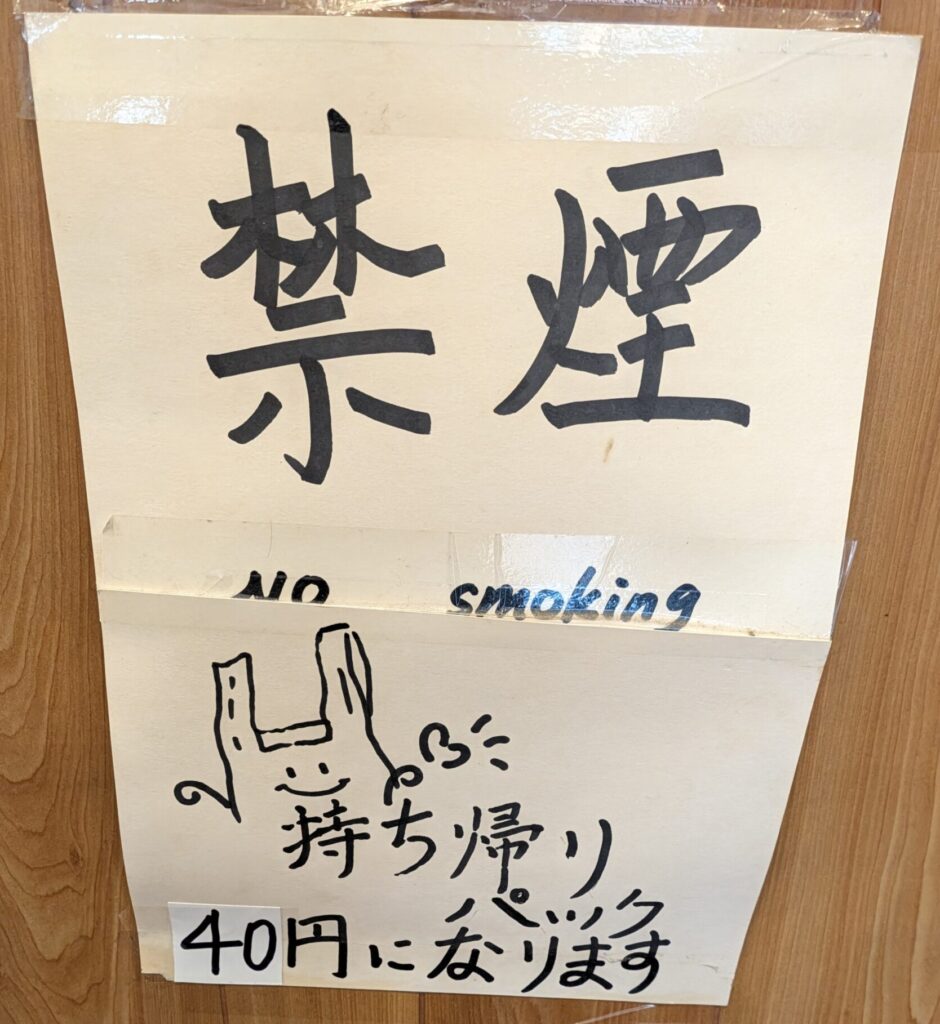 禁煙
NO smoking
持ち帰り
パック
40円になります